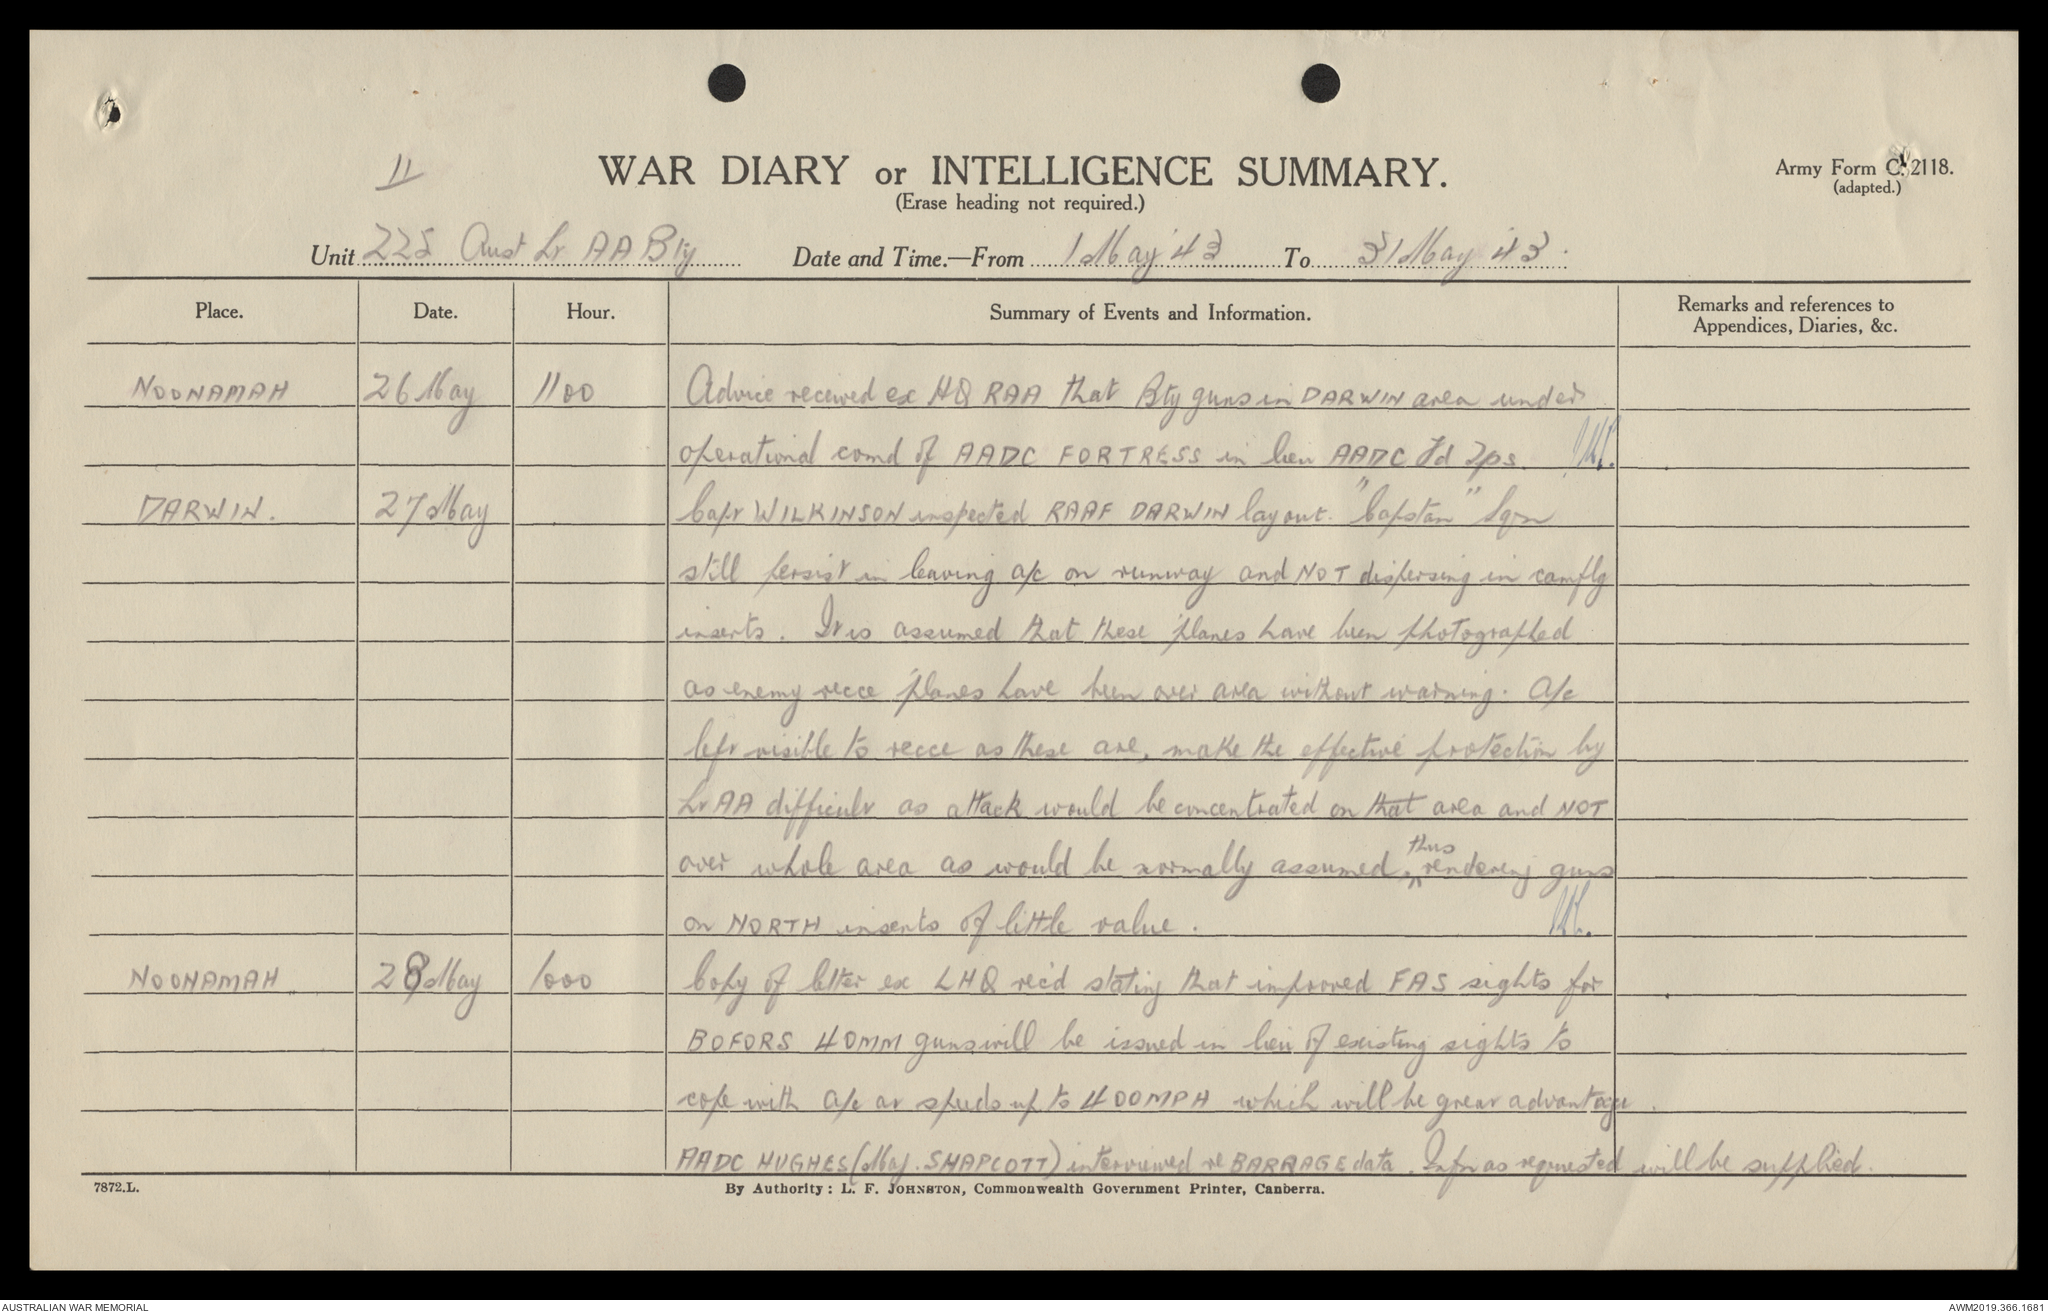 11
WAR DIARY or INTELLIGENCE SUMMARY.
Army Form C. 2118.
(adapted.)
(Erase heading not required.)
Unit 225 Aust Lt AA Bty Date and Time.—From 1 May '43 To 31 May '43.
Place. Date. Hour. Summary of Events and Information. Remarks and references to
Appendices, Diaries, &c.
NOONAMAH 26 May 1100 Advice received ex HQ RAA that Bty guns in DARWIN area under
operational comd of AADC FORTRESS in lieu AADC Fd Tps.
DARWIN. 27 May Capt WILKINSON inspected RAAF DARWIN layout. "Capstan" Sqn
still persist in leaving a/c on runway and NOT dispersing in camflg
inserts. It is assumed that these 'planes have been photographed
as enemy recce 'planes have been over area without warning. A/c
left visible to recce as these are, make the effective protection by
Lt AA difficult as attack would be concentrated on that area and NOT
over whole area as would be normally assumed, thus rendering guns
on NORTH inserts of little value.
NOONAMAH 28 May 1000 Copy of letter ex LHQ rec'd stating that improved FAS sights for
BOFORS 40MM guns will be issued in lieu of existing sights to
cope with a/c at speeds up to 400MPH which will be great advantage.
AADC HUGHES (Maj. SHAPCOTT) interviewed re BARRAGE data. Infn as requested will be supplied.
7872.L.
By Authority: L. F. JOHNSTON, Commonwealth Government Printer, Canberra.
AUSTRALIAN WAR MEMORIAL
AWM2019.366.1681